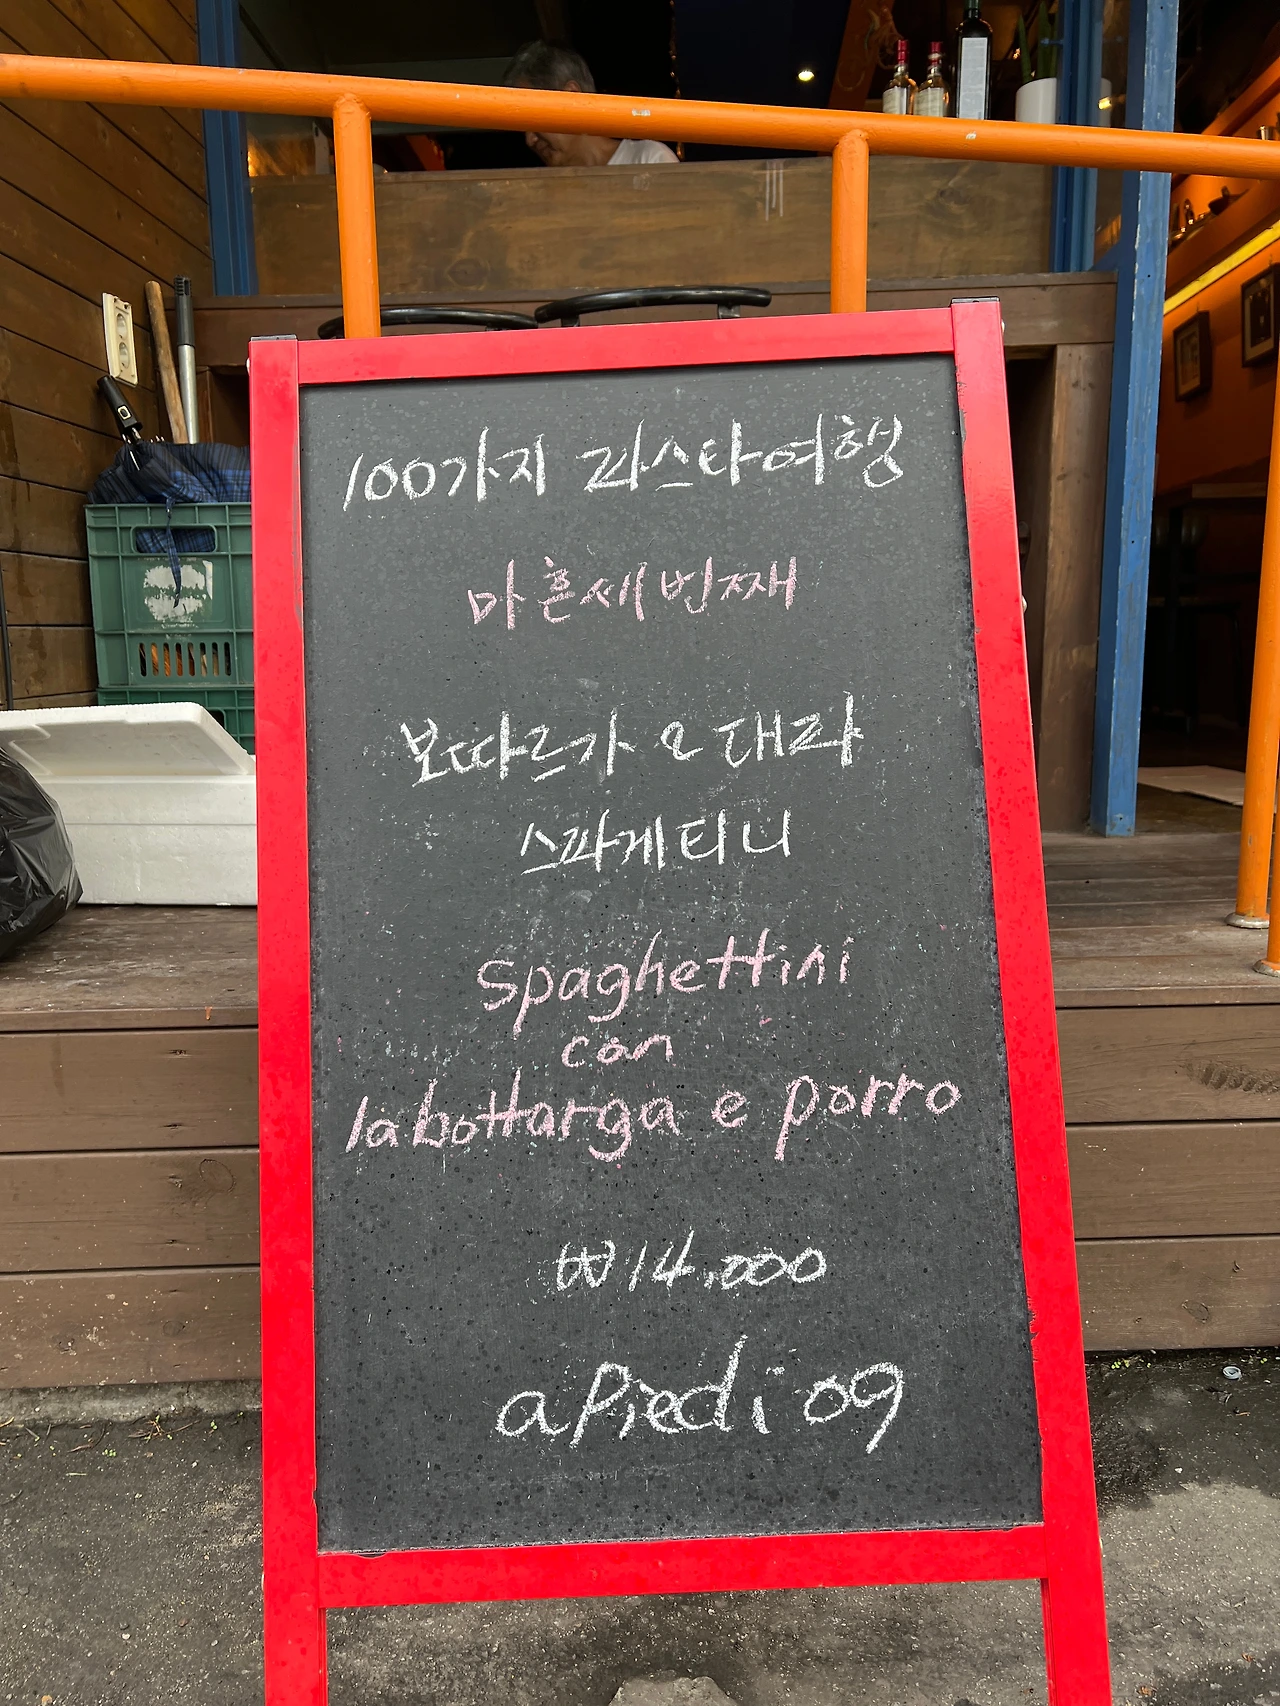 100가지 파스타여행
마흔세번째
보따르가 & 대파
스파게티니
spaghettini
con
la bottarga e porro
₩14,000
a Piedi 09